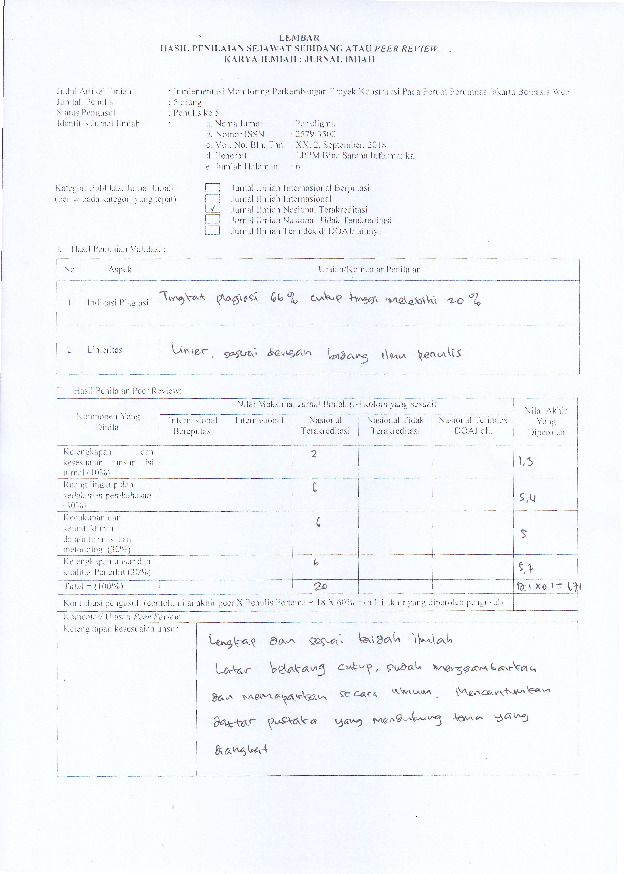 LEMBAR
HASIL PENILAIAN SEJAWAT SEBIDANG ATAU PEER REVIEW
KARYA ILMIAH : JURNAL IMIAH
Judul Artikel Ilmiah : Implementasi Monitoring Perkembangan Proyek Konstruksi Pada Perum Perumnas Jakarta Berbasis Web
Jumlah Penulis : 5 orang
Status Pengusul : Penulis ke 5
Identitas Jurnal Ilmiah : a. Nama Jurnal : Paradigma
b. Nomor ISSN : 2579-3500
c. Vol. No. Bln. Thn : XX, 2, September, 2018
d. Penerbit : LPPM Bina Sarana Informatika
e. Jumlah Halaman : 6
Kategori Publikasi Jurnal Ilmiah
(beri pada kategori yang tepat)
Jurnal Ilmiah Internasional Bereputasi
Jurnal Ilmiah Internasional
√ Jurnal Ilmiah Nasional Terakreditasi
Jurnal Ilmiah Nasional Tidak Terakreditasi
Jurnal Ilmiah Terindex di DOAJ/lainnya
I. Hasil Penilaian Validasi :
No Aspek Uraian/Komentar Penilaian
1 Indikasi Plagiasi Tingkat plagiasi 66% cukup tinggi melebihi 20%
2 Linieritas Linier, sesuai dengan bidang ilmu penulis
Hasil Penilaian Peer Review:
Komponen Yang
Dinilai
Nilai Maksimal Jurnal Ilmiah (isi kolom yang sesuai)
Internasional
Bereputasi
Internasional
Nasional
Terakreditasi
Nasional Tidak
Terakreditasi
Nasional Terindex
DOAJ dll.
Nilai Akhir
Yang
Diperoleh
Kelengkapan dan
kesesuaian unsur isi
jurnal (10%)
2
Ruang lingkup dan
kedalaman pembahasan
(30%)
6 5,4
Kecukupan dan
kemutakhiran
data/informasi dan
metodologi (30%)
6 5
Kelengkapan unsur dan
kualitas Penerbit (30%)
6 5,7
Total = (100%) 20
Komentar/Ulasan Peer Review
Kelengkapan kesesuaian unsur
Lengkap dan sesuai kaidah ilmiah
Latar belakang cukup, sudah menggambarkan
dan memaparkan secara umum. Mencantumkan
daftar pustaka yang mendukung tema yang
diangkat